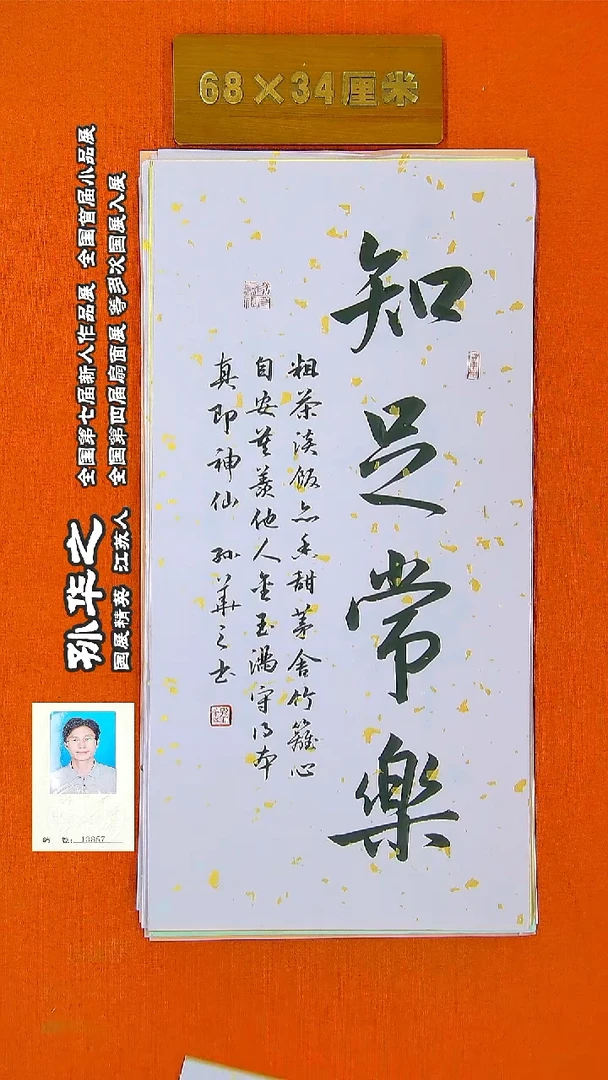 68×34厘米
知足常樂
粗茶淡飯亦香甜茅舍竹籬心
自安莫羨他人金玉滿守得本
真即神仙 孙華之书
孙华之
国展精英 江苏人
全国第七届新人作品展 全国首届小品展
全国第四届扇面展 等多次国展入展
13867